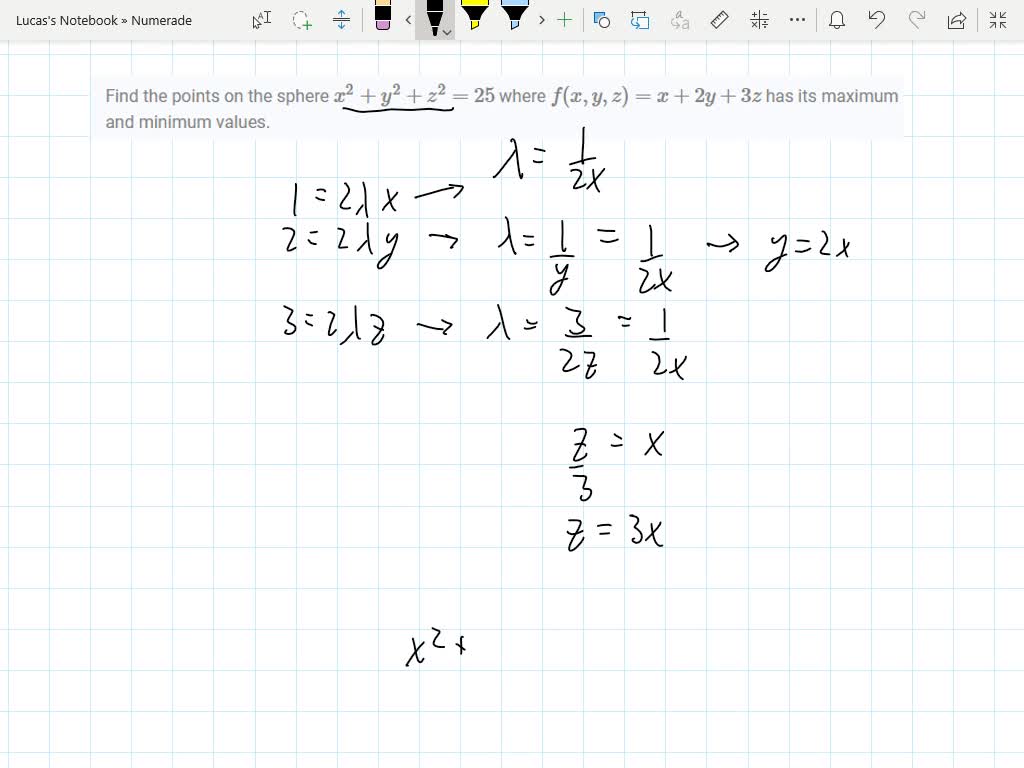 Lucas's Notebook » Numerade
Find the points on the sphere x² + y² + z² = 25 where f(x, y, z) = x + 2y + 3z has its maximum
and minimum values.
1 = 2λx → λ = 1/2x
2 = 2λy → λ = 1/y = 1/2x → y = 2x
3 = 2λz → λ = 3/2z = 1/2x
z/3 = x
z = 3x
x² +